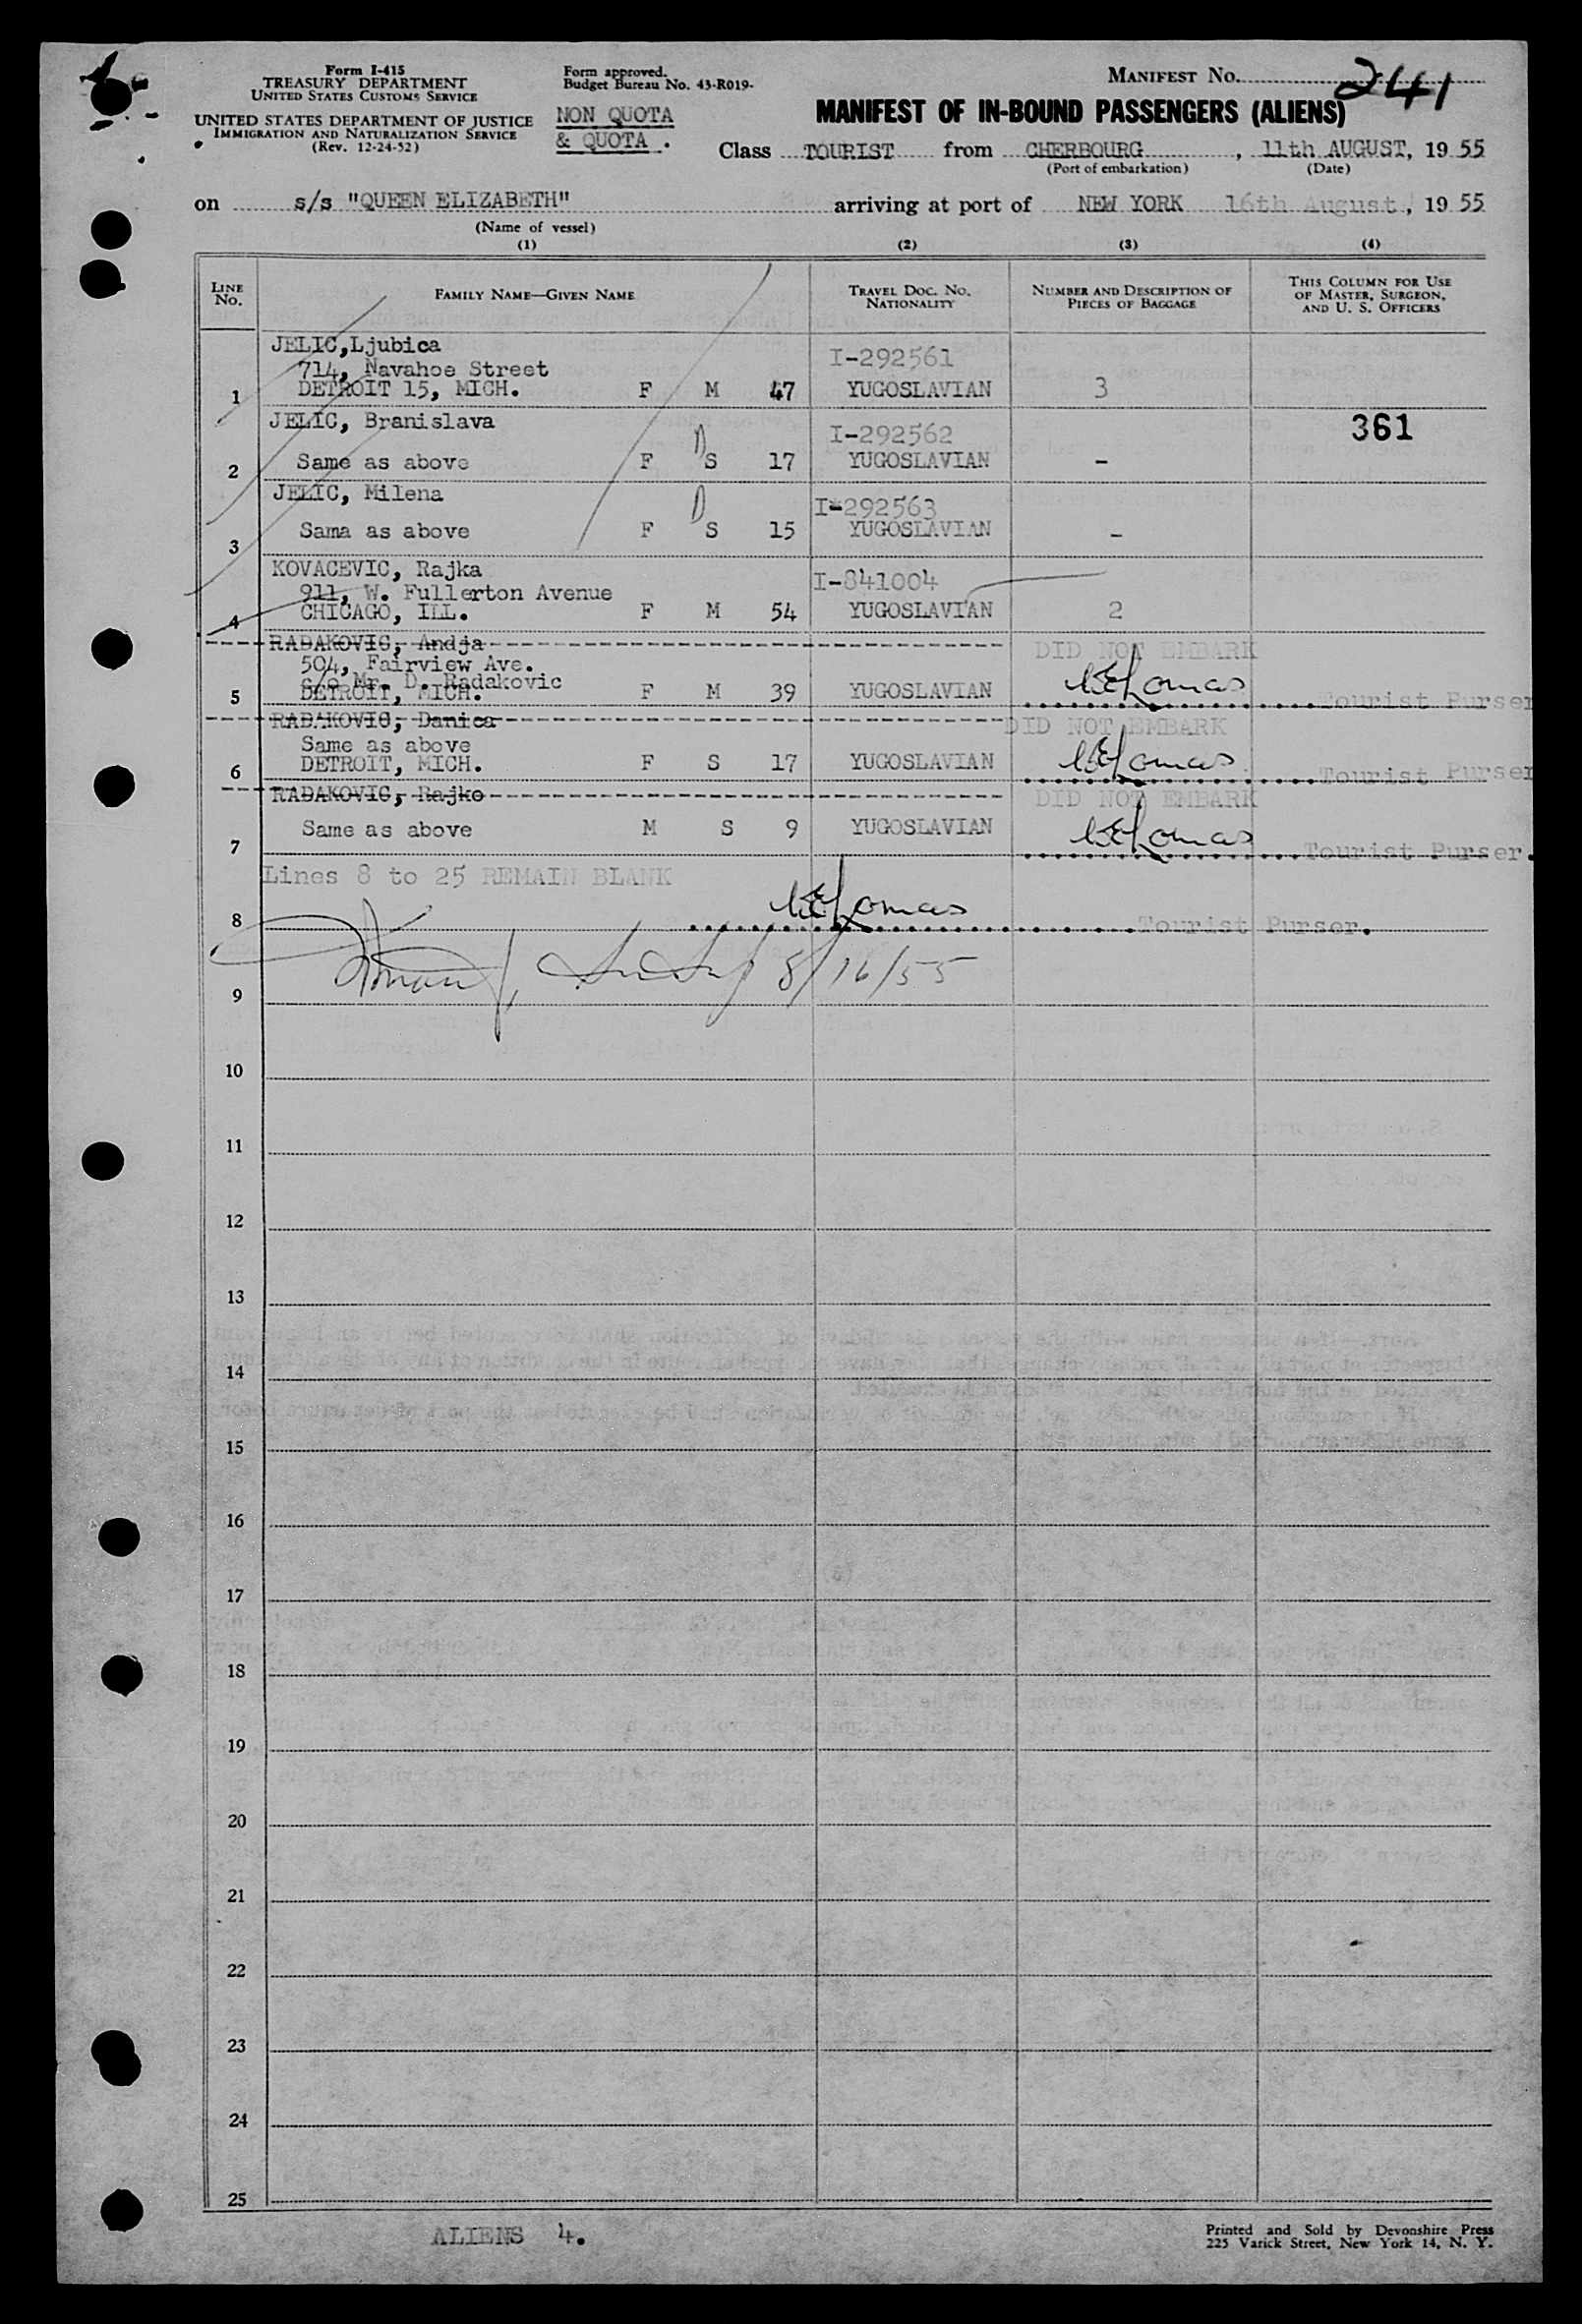 Form I-415
TREASURY DEPARTMENT
UNITED STATES CUSTOMS SERVICE
UNITED STATES DEPARTMENT OF JUSTICE
IMMIGRATION AND NATURALIZATION SERVICE
(Rev. 12-24-52)
Form approved.
Budget Bureau No. 43-R019-
NON QUOTA
& QUOTA .
MANIFEST NO. 241
MANIFEST OF IN-BOUND PASSENGERS (ALIENS)
Class TOURIST from CHERBOURG, 11th AUGUST, 19 55
(Port of embarkation) (Date)
on s/s "QUEEN ELIZABETH" arriving at port of NEW YORK 16th August, 19 55
(Name of vessel)
(1) (2) (3) (4)
LINE No. FAMILY NAME—GIVEN NAME TRAVEL DOC. NO. NATIONALITY NUMBER AND DESCRIPTION OF PIECES OF BAGGAGE THIS COLUMN FOR USE OF MASTER, SURGEON, AND U. S. OFFICERS
JELIC,Ljubica I-292561
714, Navahoe Street
1 DETROIT 15, MICH. F M 47 YUGOSLAVIAN 3
JELIC, Branislava I-292562 361
2 Same as above F S 17 YUGOSLAVIAN -
JELIC, Milena I-292563
3 Sama as above F S 15 YUGOSLAVIAN -
KOVACEVIC, Rajka I-841004
911, W. Fullerton Avenue
4 CHICAGO, ILL. F M 54 YUGOSLAVIAN 2
RADAKOVIC, Andja DID NOT EMBARK
504, Fairview Ave.
c/o Mr. D. Radakovic
5 DETROIT, MICH. F M 39 YUGOSLAVIAN Tourist Purser
RADAKOVIC, Danica DID NOT EMBARK
Same as above
6 DETROIT, MICH. F S 17 YUGOSLAVIAN Tourist Purser
RADAKOVIC, Rajko DID NOT EMBARK
7 Same as above M S 9 YUGOSLAVIAN Tourist Purser.
Lines 8 to 25 REMAIN BLANK
8 Tourist Purser.
9 8/16/55
10
11
12
13
14
15
16
17
18
19
20
21
22
23
24
25
ALIENS 4.
Printed and Sold by Devonshire Press
225 Varick Street, New York 14, N. Y.